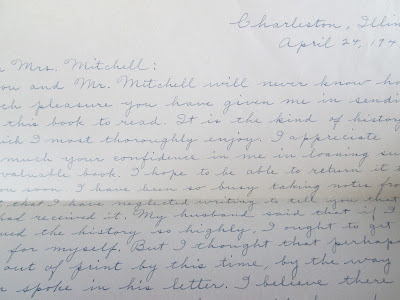 Charleston, Illin
April 24, 194
Mrs. Mitchell:
you and Mr. Mitchell will never know ho
ch pleasure you have given me in sendi
this book to read. It is the kind of history
ich I most thoroughly enjoy. I appreciate
much your confidence in me in loaning su
valuable book. I hope to be able to return it
soon. I have been so busy taking notes from
that I have neglected writing to tell you that
had received it. My husband said that if I
ued the history so highly, I ought to get
for myself. But I thought that perhaps
out of print by this time, by the way
spoke in his letter. I believe there